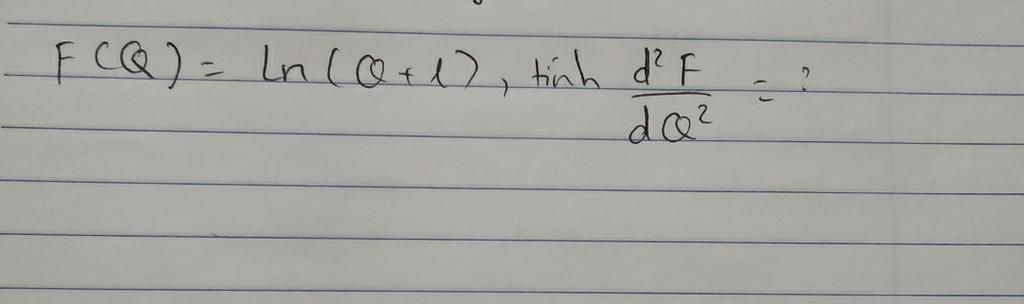 F(Q) = ln(Q+1), tính d²F/dQ² = ?